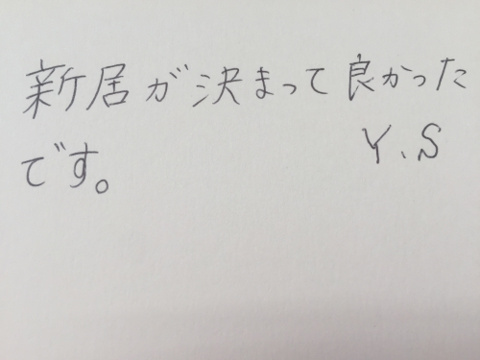 新居が決まって良かった
です。
Y.S